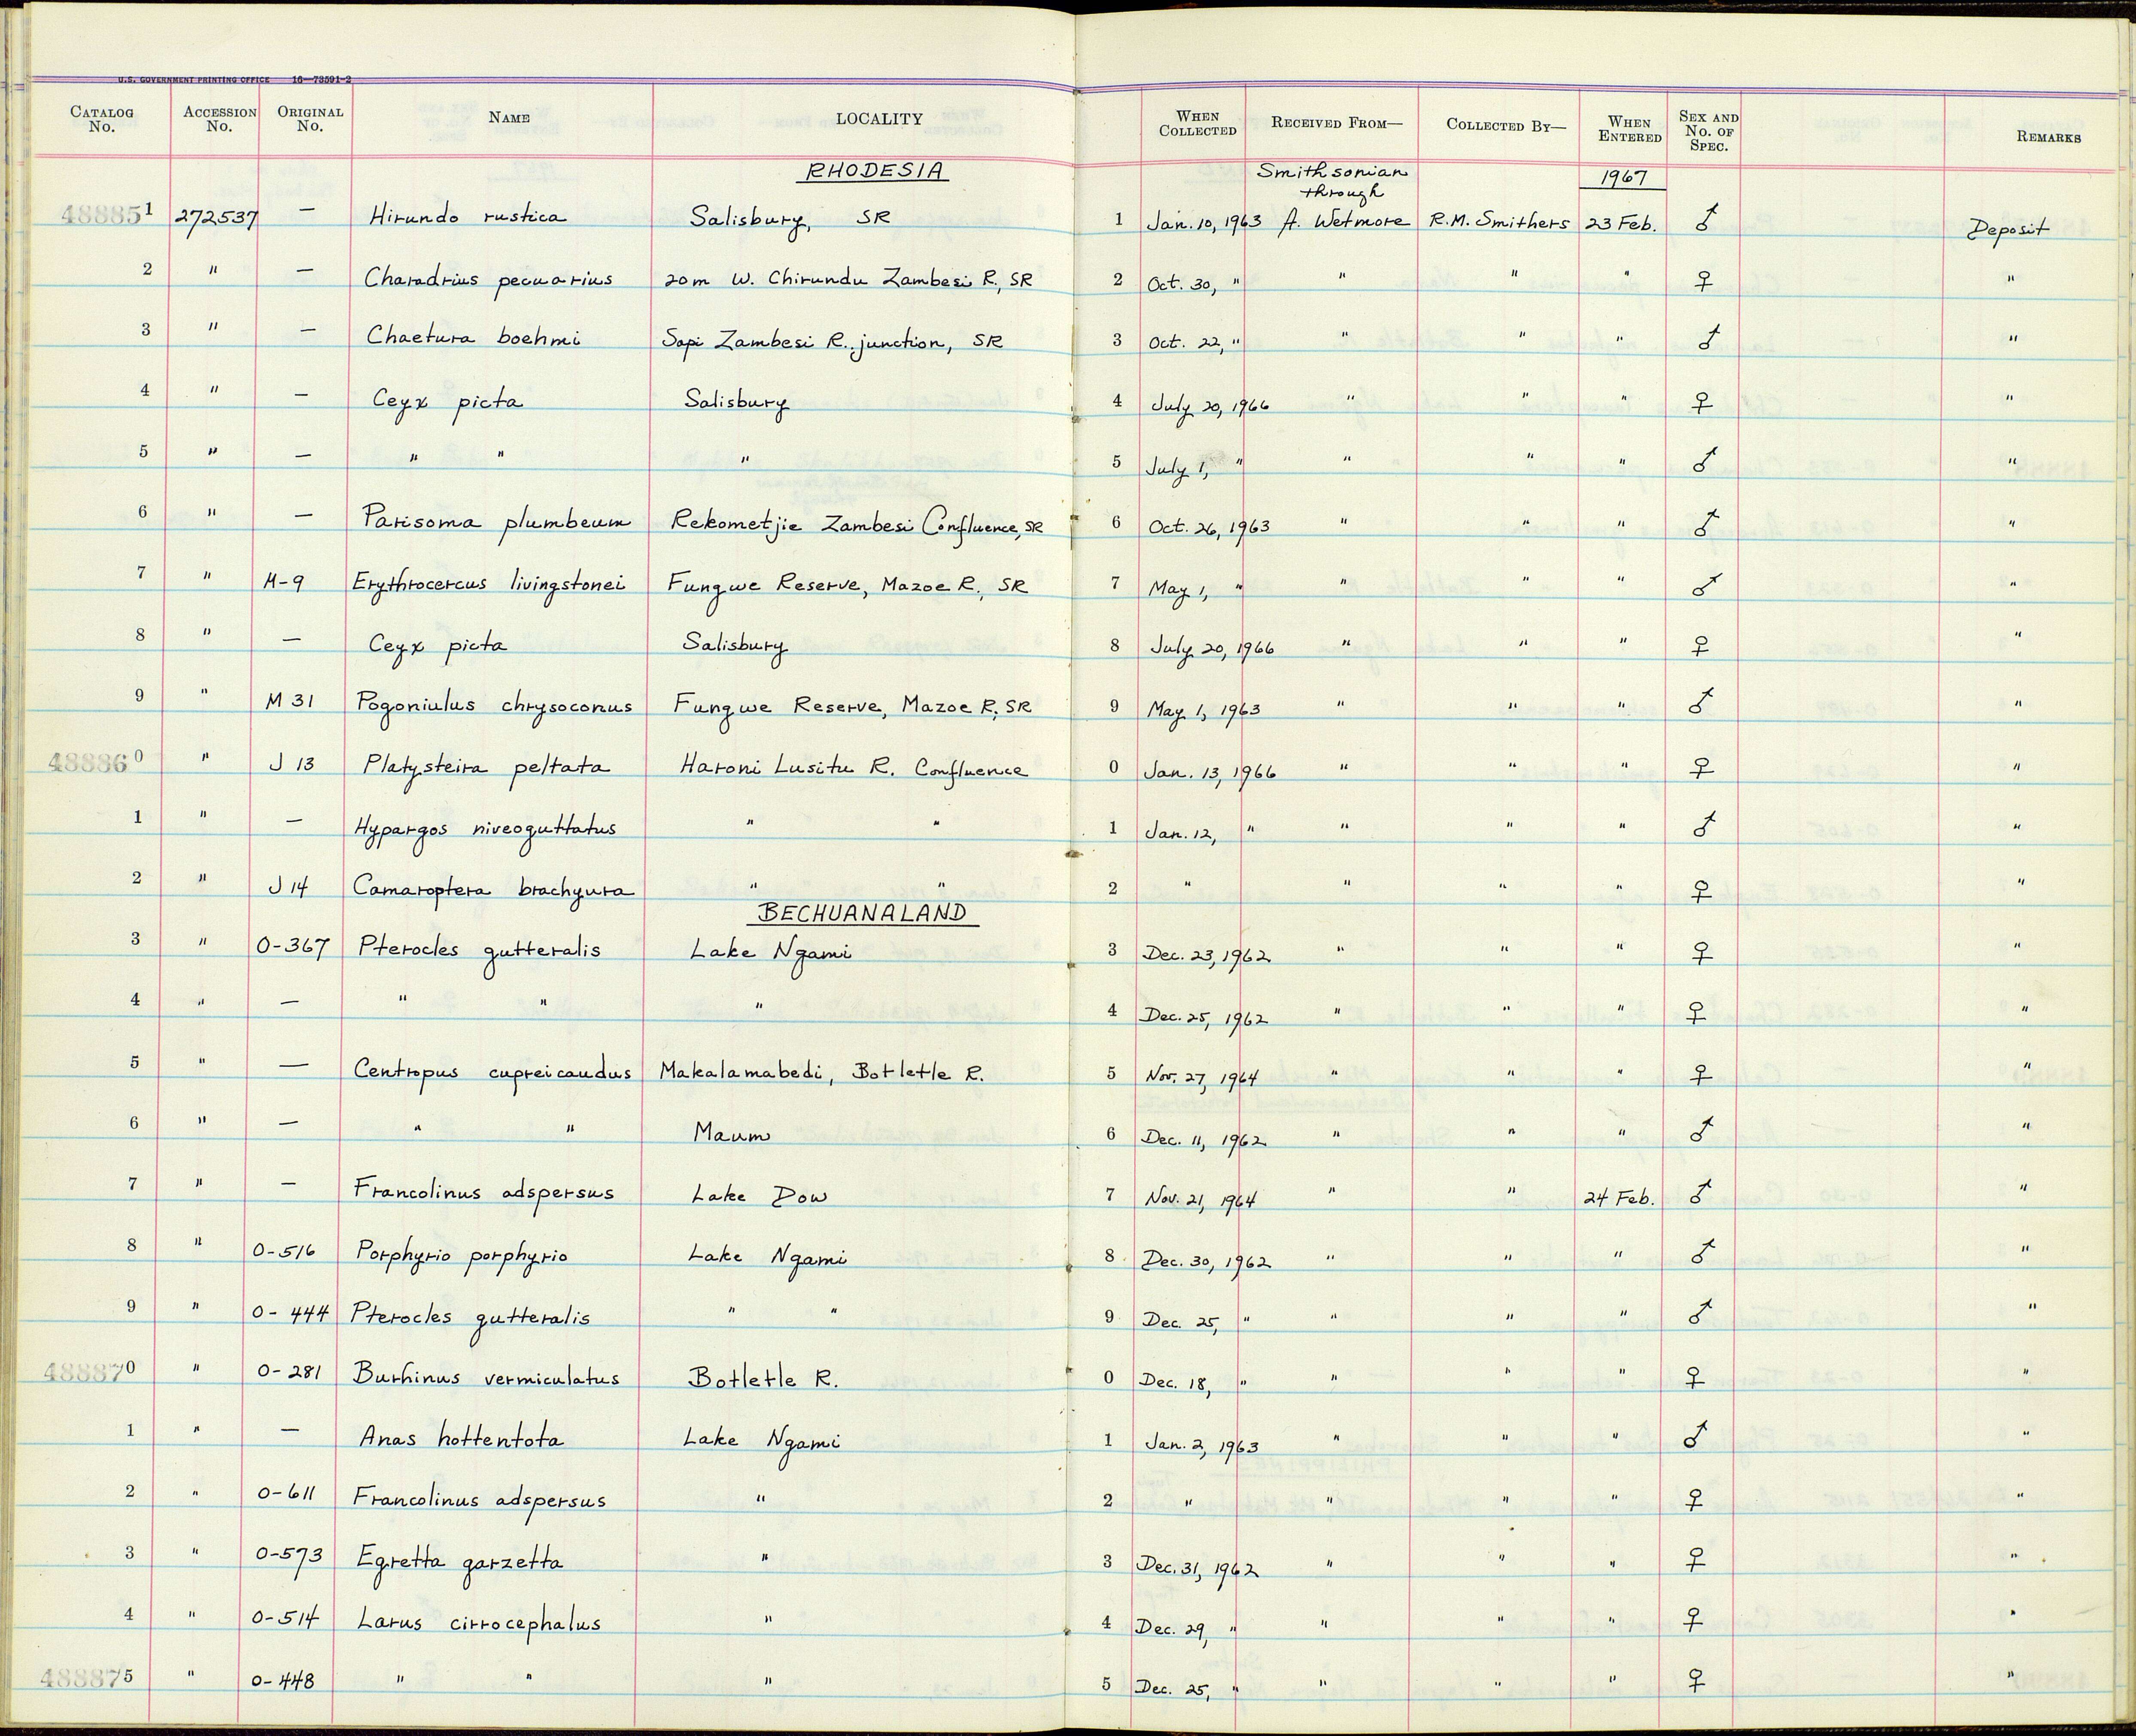 U.S. GOVERNMENT PRINTING OFFICE 16—73591-2
CATALOG No. ACCESSION No. ORIGINAL No. NAME LOCALITY WHEN COLLECTED RECEIVED FROM— COLLECTED BY— WHEN ENTERED SEX AND No. OF SPEC. REMARKS
RHODESIA Smithsonian through 1967
488851 272537 — Hirundo rustica Salisbury, SR 1 Jan. 10, 1963 A. Wetmore R.M. Smithers 23 Feb. ♂ Deposit
2 " — Charadrius pecuarius 20m W. Chirundu Zambesi R., SR 2 Oct. 30, " " " " ♀ "
3 " — Chaetura boehmi Sapi Zambesi R. junction, SR 3 Oct. 22, " " " " ♂ "
4 " — Ceyx picta Salisbury 4 July 20, 1966 " " " ♀ "
5 " — " " " 5 July 1, " " " " ♂ "
6 " — Parisoma plumbeum Rekometjie Zambesi Confluence, SR 6 Oct. 26, 1963 " " " ♂ "
7 " M-9 Erythrocercus livingstonei Fungwe Reserve, Mazoe R., SR 7 May 1, " " " " ♂ "
8 " — Ceyx picta Salisbury 8 July 20, 1966 " " " ♀ "
9 " M 31 Pogoniulus chrysoconus Fungwe Reserve, Mazoe R, SR 9 May 1, 1963 " " " ♂ "
488860 " J 13 Platysteira peltata Haroni Lusitu R. Confluence 0 Jan. 13, 1966 " " " ♀ "
1 " — Hypargos niveoguttatus " " 1 Jan. 12, " " " " ♂ "
2 " J 14 Camaroptera brachyura " " 2 " " " " ♀ "
BECHUANALAND
3 " O-367 Pterocles gutteralis Lake Ngami 3 Dec. 23, 1962 " " " ♀ "
4 " — " " " 4 Dec. 25, 1962 " " " ♀ "
5 " — Centropus cupreicaudus Makalamabedi, Botletle R. 5 Nov. 27, 1964 " " " ♀ "
6 " — " " Maum 6 Dec. 11, 1962 " " " ♂ "
7 " — Francolinus adspersus Lake Dow 7 Nov. 21, 1964 " " 24 Feb. ♂ "
8 " O-516 Porphyrio porphyrio Lake Ngami 8 Dec. 30, 1962 " " " ♂ "
9 " O-444 Pterocles gutteralis " " 9 Dec. 25, " " " " ♂ "
488870 " O-281 Burhinus vermiculatus Botletle R. 0 Dec. 18, " " " " ♀ "
1 " — Anas hottentota Lake Ngami 1 Jan. 2, 1963 " " " ♂ "
2 " O-611 Francolinus adspersus " 2 " " " " ♀ "
3 " O-573 Egretta garzetta " 3 Dec. 31, 1962 " " " ♀ "
4 " O-514 Larus cirrocephalus " 4 Dec. 29, " " " " ♀ "
488875 " O-448 " " " 5 Dec. 25, " " " " ♀ "